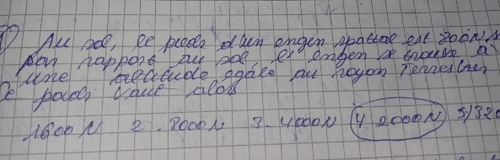 Au sol, le poids d'un engen spatial est 8000N
par rapport au sol l'engen se trouve à
une altitude egale au rayon Terrestre
le poids vaut alors
1600N 2. 8000N 3. 4000N (4 2000N) 5/320